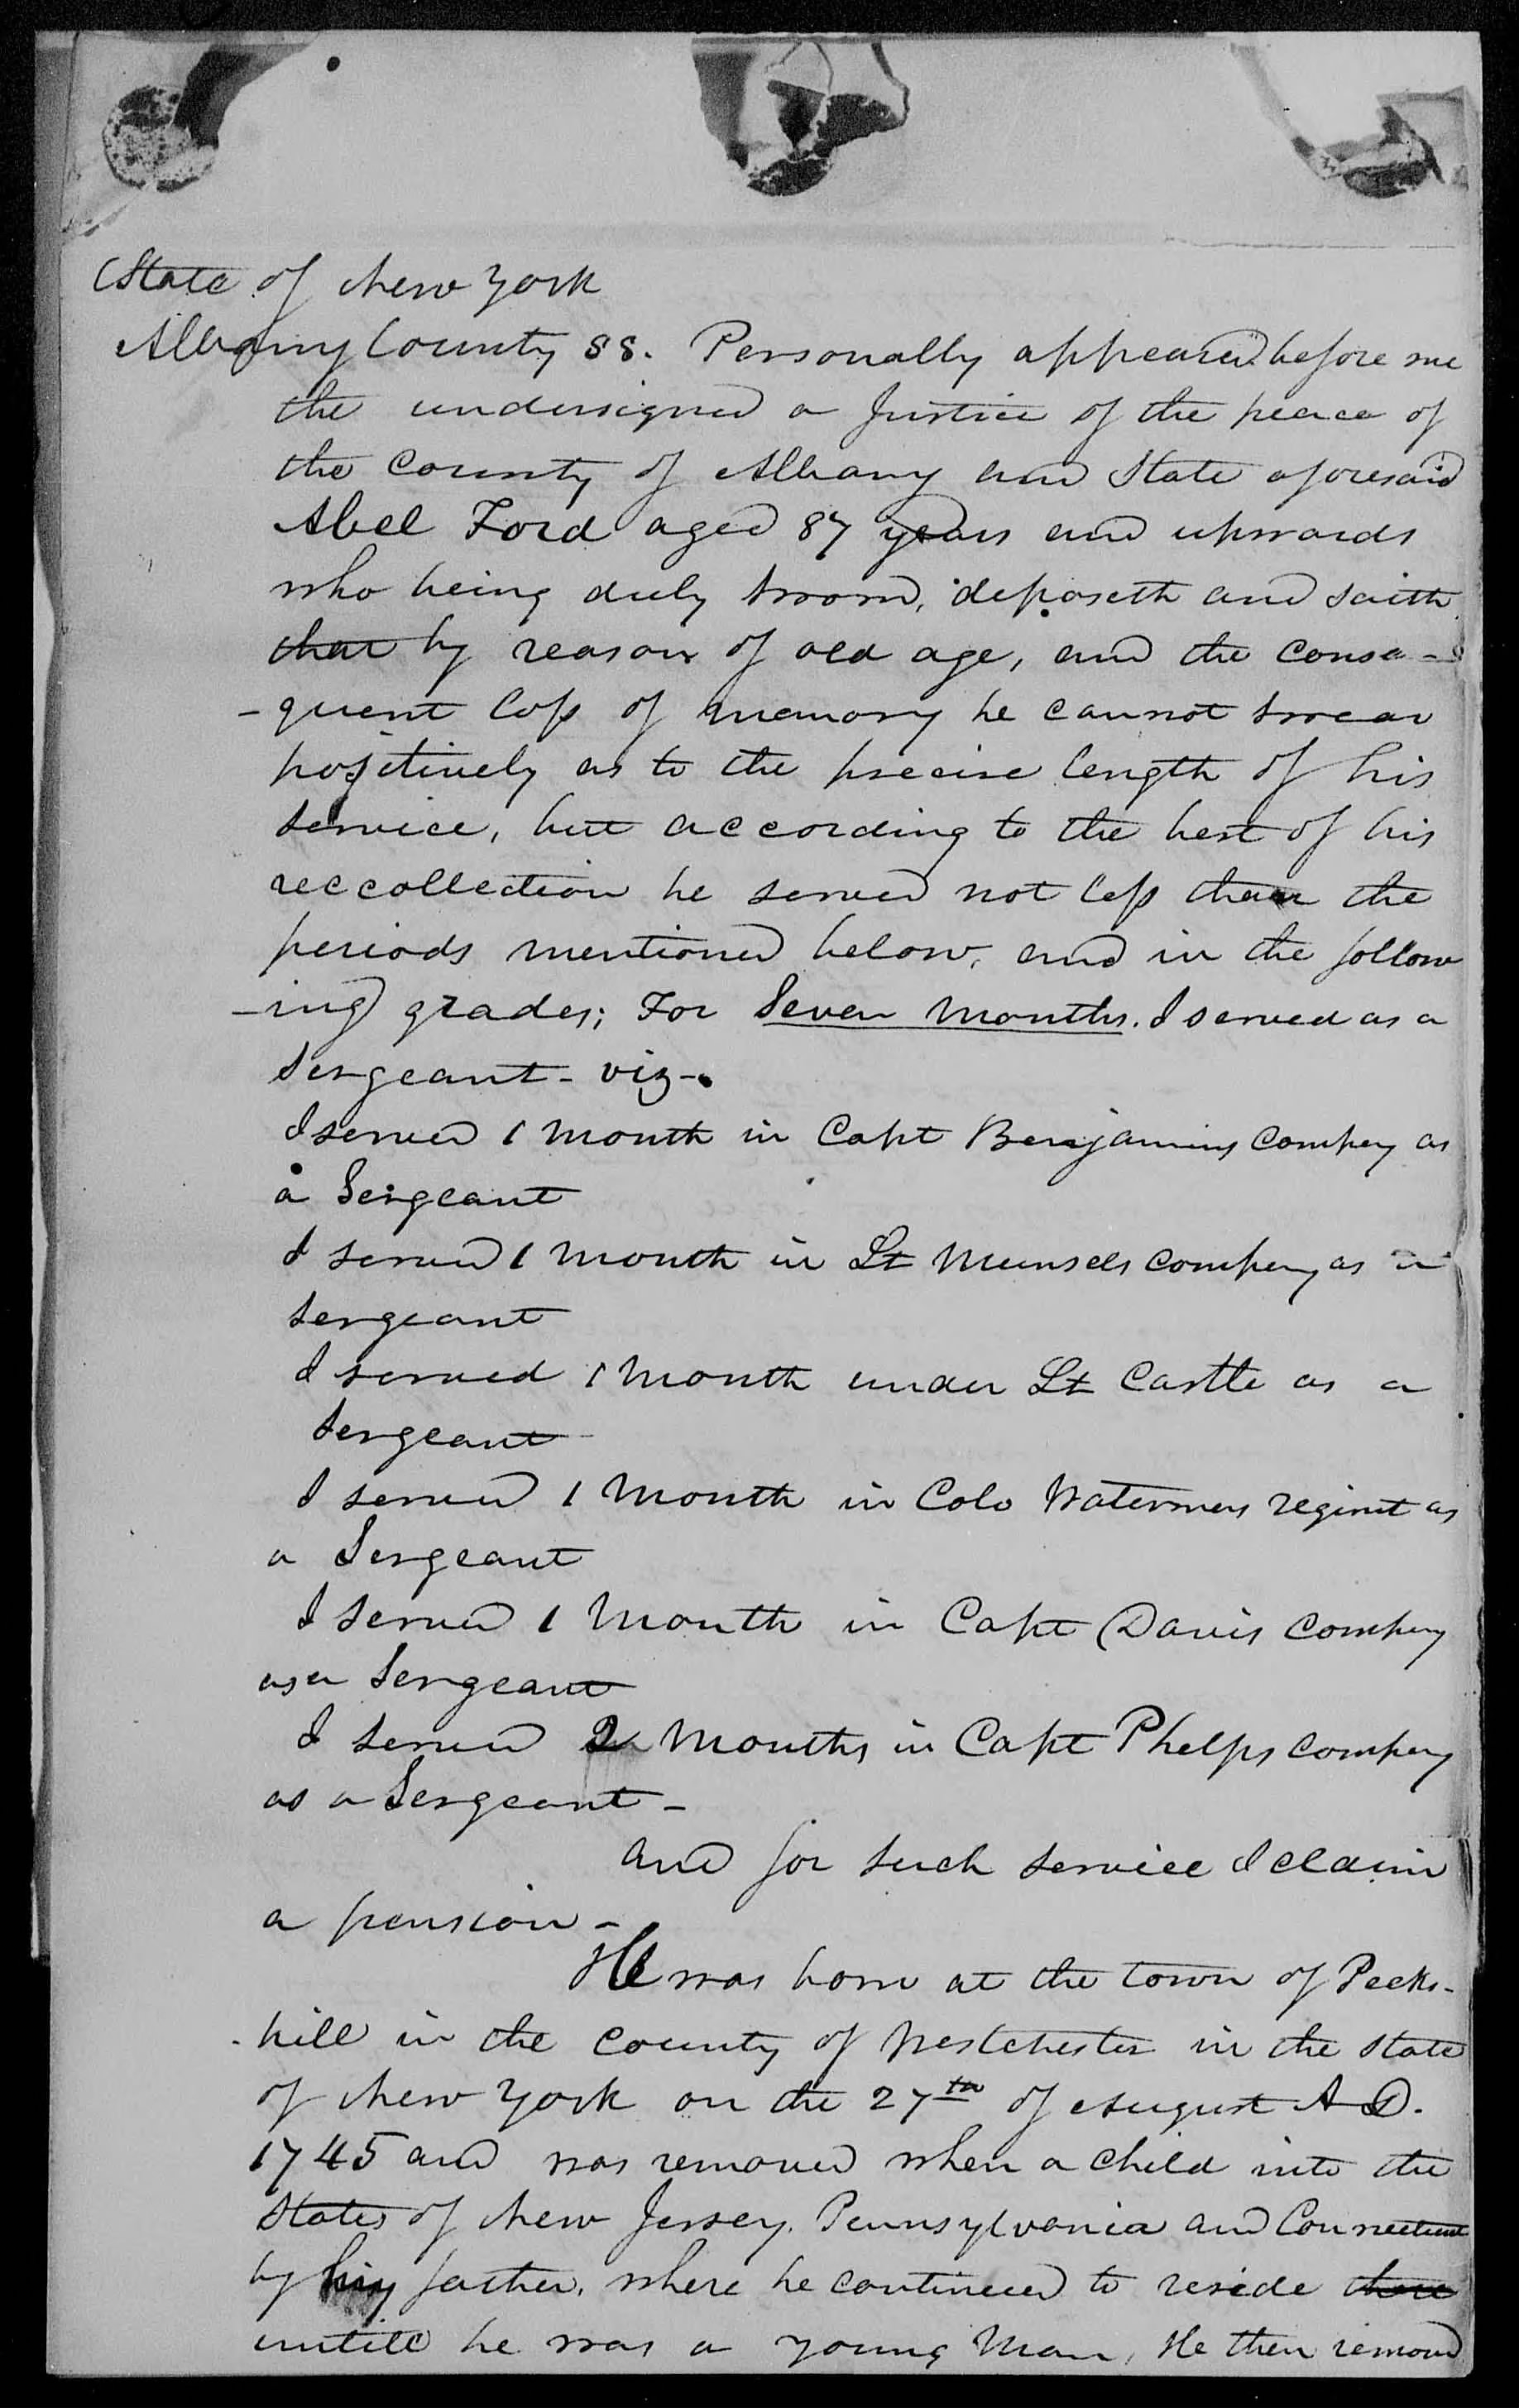 State of New York
Albany County SS. Personally appeared before me
the undersigned a Justice of the peace of
the County of Albany and State aforesaid
Abel Ford aged 87 years and upwards
who being duly sworn, deposeth and saith
that by reason of old age, and the conse-
-quent loss of memory he cannot swear
positively as to the precise length of his
service, but according to the best of his
reccollection he served not less than the
periods mentioned below, and in the follow
-ing grades; For Seven Months. I served as a
Sergeant - viz -
I served 1 Month in Capt Benjamins Compay as
a Sergeant
I served 1 Month in Lt Munsels Compay as a
Sergeant
I served 1 Month under Lt Castle as a
Sergeant
I served 1 Month in Colo Watermans regimt as
a Sergeant
I served 1 Month in Capt Davis Compay
as a Sergeant
I served 2 Months in Capt Phelps Compay
as a Sergeant -
and for such service I claim
a pension -
He was born at the town of Peeks-
-kill in the County of Westchester in the State
of New York on the 27th of August A D.
1745 and was removed when a child into the
States of New Jersey, Pennsylvania and Connecticut
by his father, where he continued to reside there
untill he was a young Man, He then removd